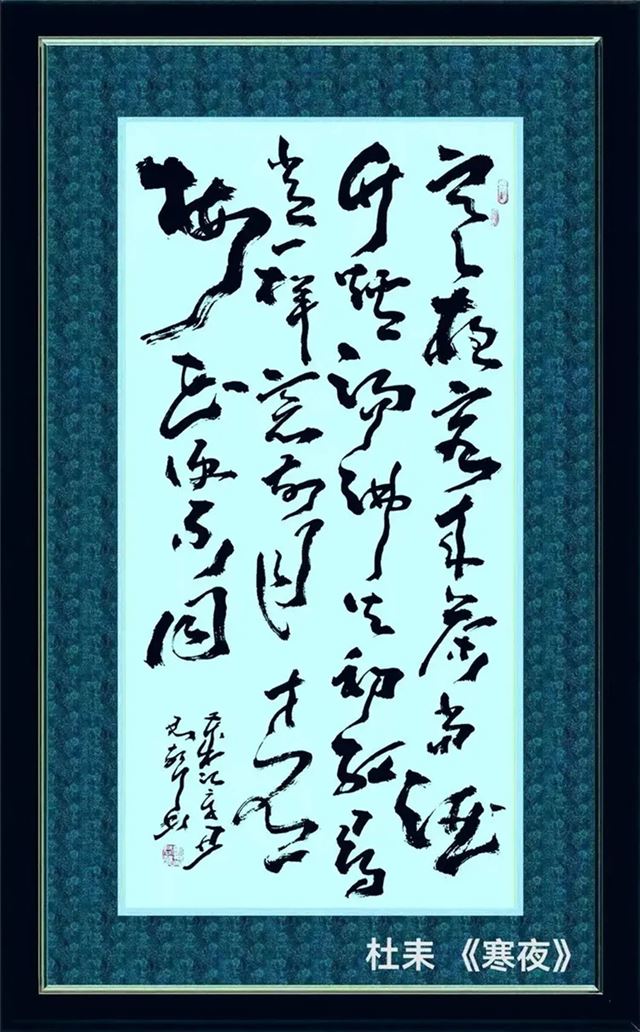 寒夜客来茶当酒
竹爐湯沸火初紅尋
常一样窗前月才有
梅花便不同
杜耒 《寒夜》